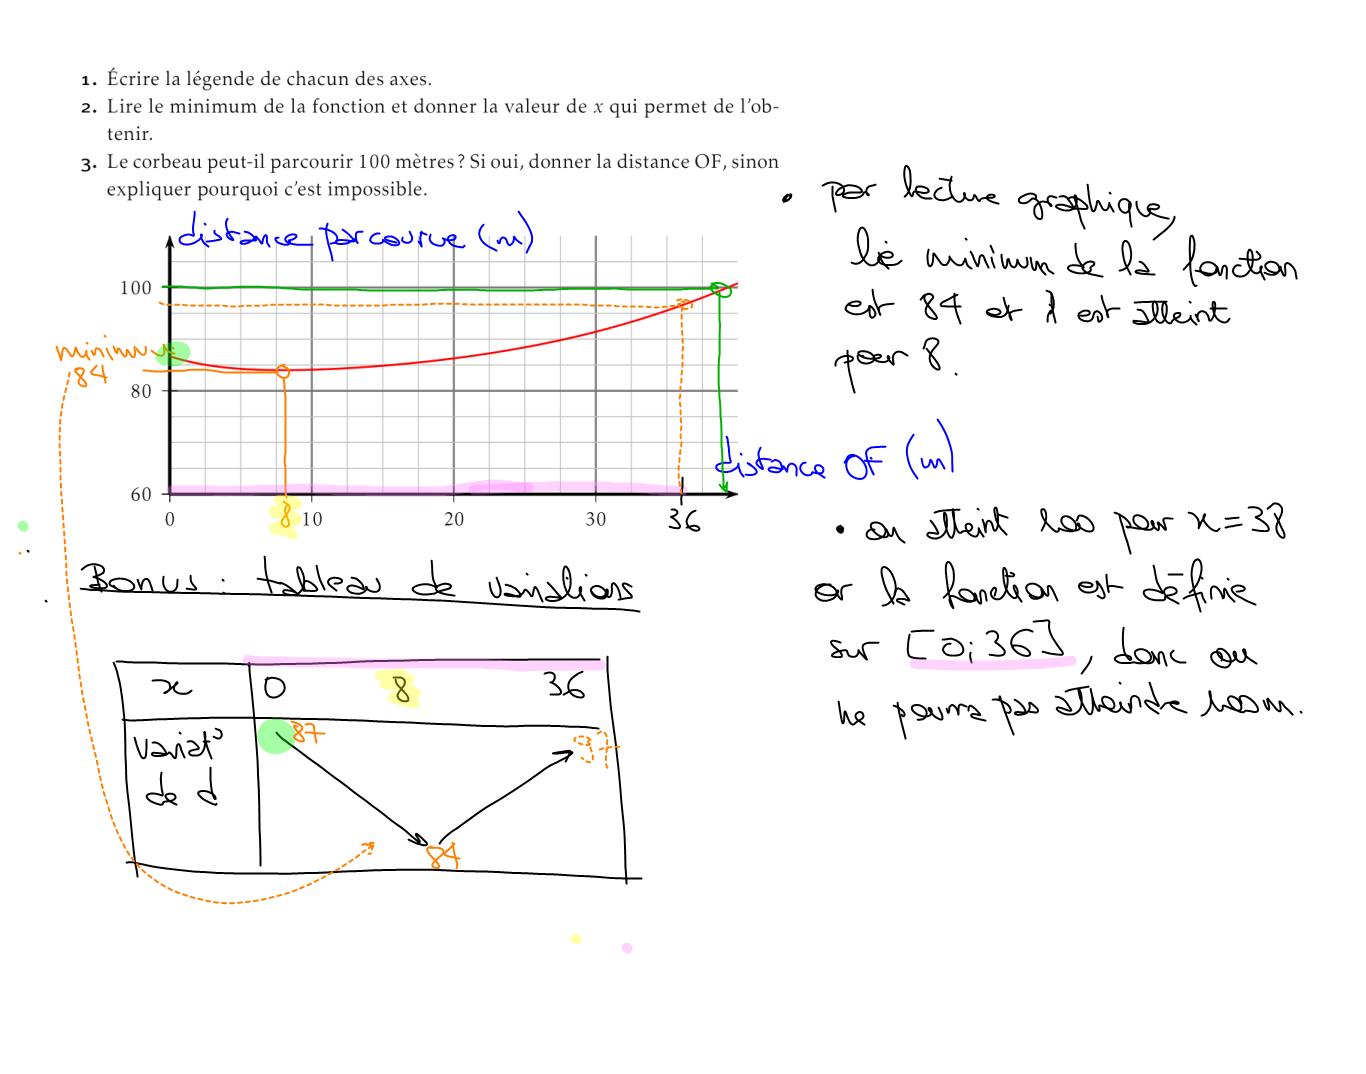 1. Écrire la légende de chacun des axes.
2. Lire le minimum de la fonction et donner la valeur de x qui permet de l'ob-
tenir.
3. Le corbeau peut-il parcourir 100 mètres ? Si oui, donner la distance OF, sinon
expliquer pourquoi c'est impossible.
distance parcourue (m)
100
minimum
84
80
60
0
8
10
20
30
36
distance OF (m)
• par lecture graphique,
le minimum de la fonction
est 84 et il est atteint
pour 8.
• on atteint 100 pour x=38
or la fonction est définie
sur [0;36], donc on
ne pourra pas atteindre 100m.
Bonus : tableau de variations
x 0 8 36
variat°
de d
87
97
84